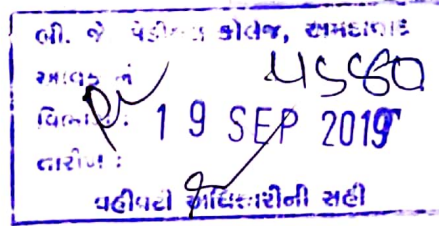 બી. જે મેડીકલ કોલેજ, અમદાવાદ
આવક નં
વિભાગ : 19 SEP 2019
તારીખ :
વહીવટી અધિકારીની સહી